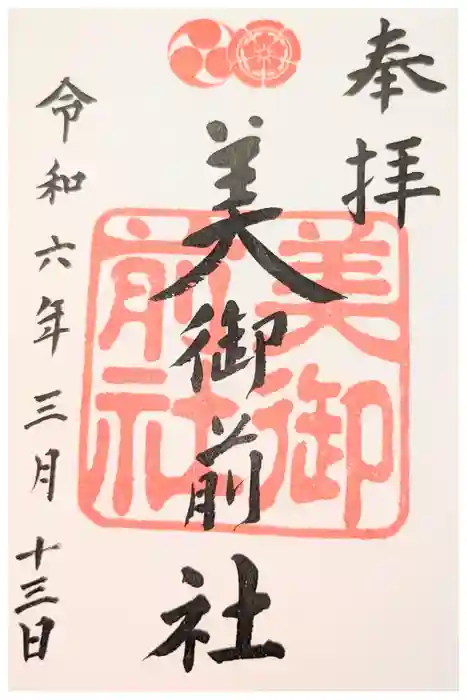 奉拝
美御前社
美御前社
令和六年三月十三日